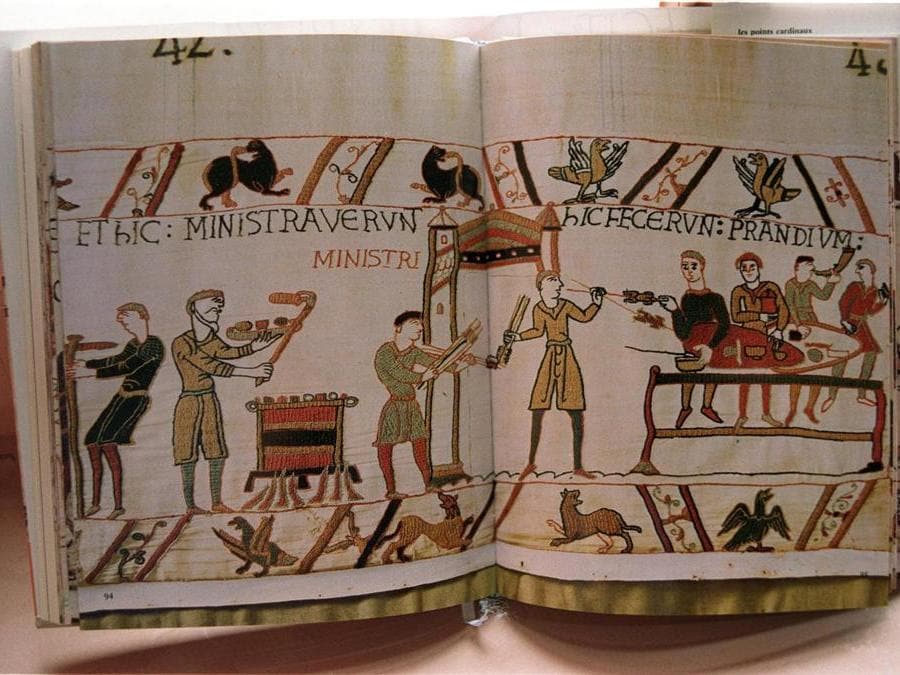 les points cardinaux
42.
ET hIC : MINISTRAVERVN
MINISTRI
hIC FECERVN: PRANDIVM:
94